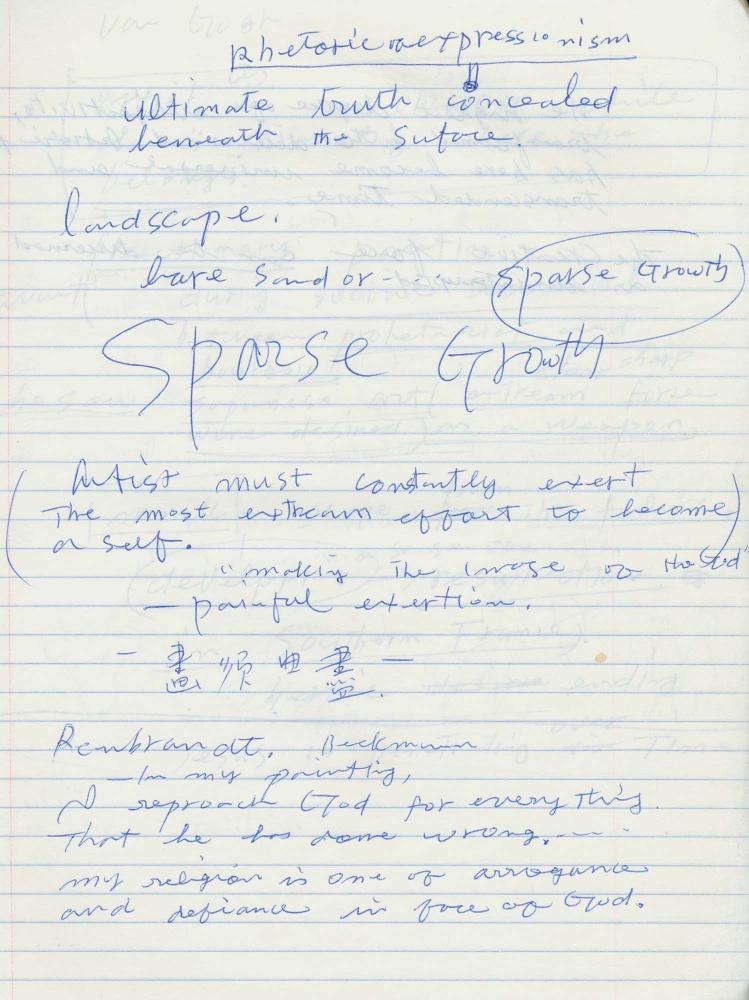 Rhetoric expressionism
ultimate truth concealed
beneath the suface.
landscape.
bare sand or - Sparse Growth
Sparse Growth
(Artist must constantly exert
The most extream effort to become
a self.)
"making the image of
— painful exertion.
– 畫 –
Rembrandt. Beckmann
—In my painting,
I reproach God for everything.
That he has done wrong.---
my religion is one of arrogance
and defiance in face of God.